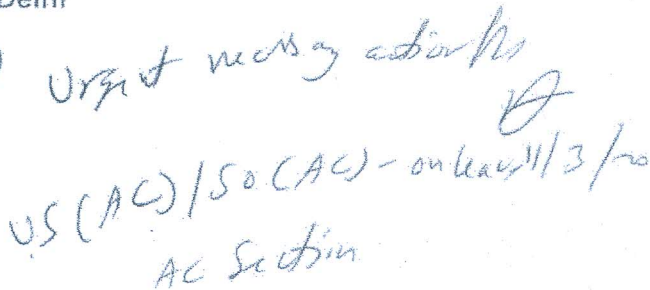 Delhi
Urgent necessary action Pls
US (AC) / SO (AC) - on leave 11/3/20
AC Section